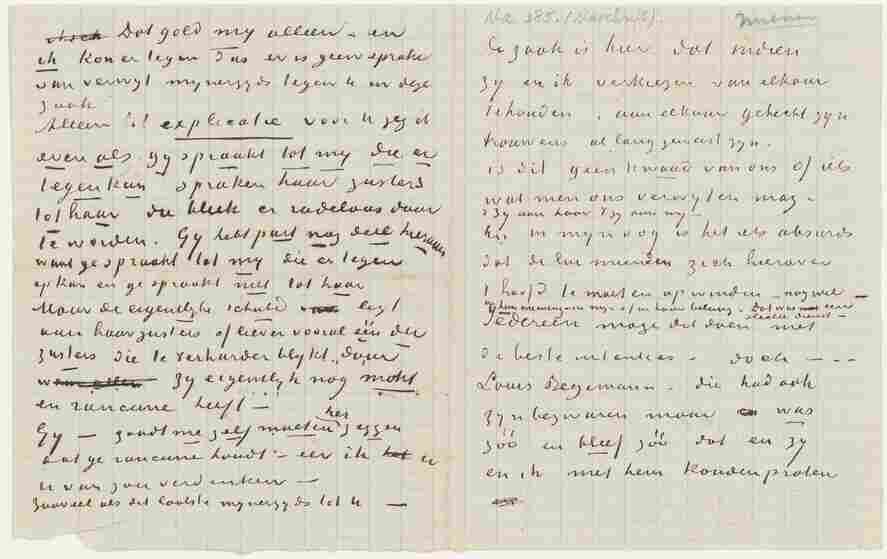 Dat gold my alleen – en
ik kon er tegen Dus er is geen sprake
van verwyt mynerzyds tegen U in deze
zaak
Alleen 't explicatie voor U zeg ik
even als gy spraakt tot my die er
tegen kan spraken haar zusters
tot haar die bleek er radeloos door
te worden. Gy hebt part nog deel hieraan
want ge spraakt tot my die er tegen
op kan en ge spraakt niet tot haar
Maar de eigenlyke schuld legt
aan haar zusters of liever vooral één der
zusters die te verharder blykt, daar
zy eigenlyk nog mokt
en rancune heeft –
Gy – zoudt me zelf moeten zeggen
dat ge rancune houdt – eer ik er
U van zou verdenken –
Zooveel als dit laatste mynerzyds tot U –
No 385.
De zaak is hier dat indien
zy en ik verkiezen van elkaar
te houden, aan elkaar gehecht zyn
trouwens al lang geweest zyn.
is dit geen kwaad van ons of iets
wat men ons verwyten mag –
zy aan haar zy aan my –
En in myn oog is het iets absurds
dat de lui meenden zich hierover
't hoofd te moeten opwinden – nog wel –
Dat was een
slechte dienst –
Iedereen moge dat doen met
de beste intenties – doch – – –
Louis Begemann – die had ook
zyn bezwaren maar was
zóó en bleef zóó dat en zy
en ik met hem konden praten